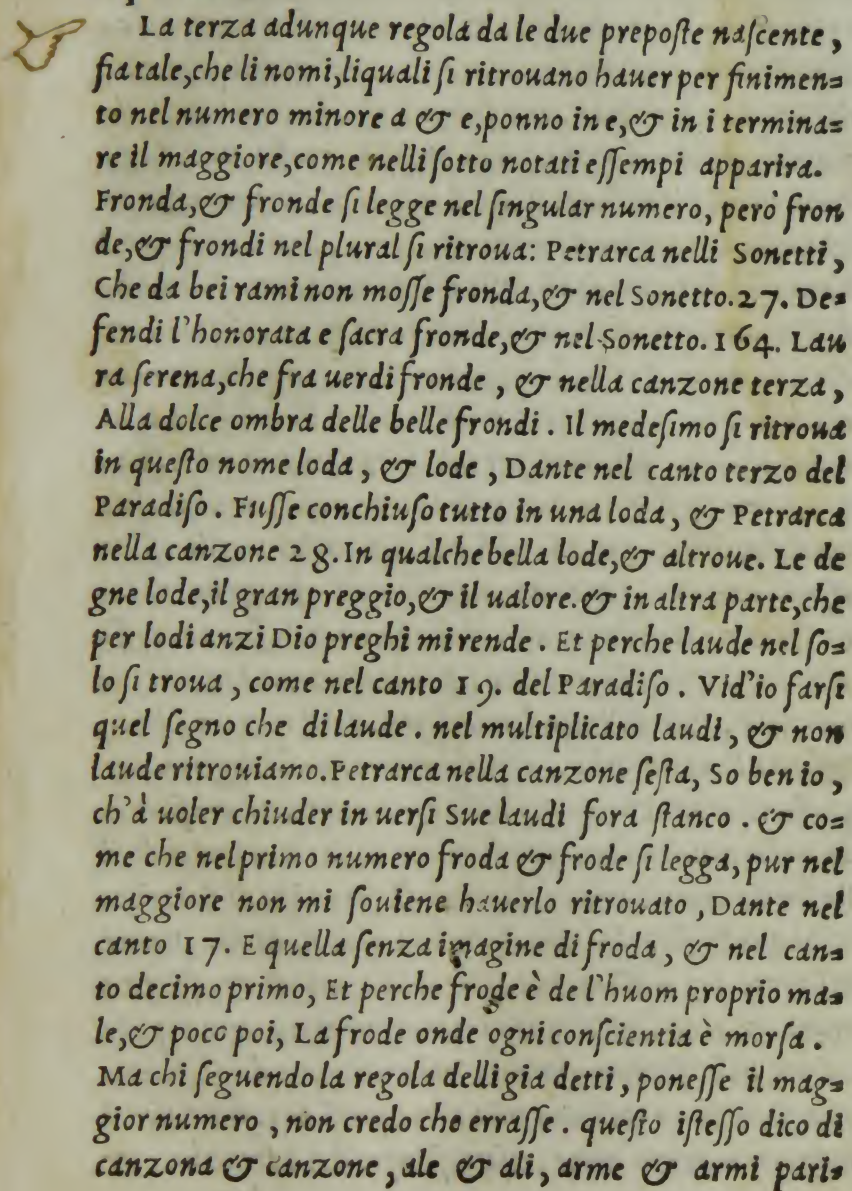 La terza adunque regola da le due preposte nascente,
fia tale, che li nomi, liquali si ritrouano hauer per finimen=
to nel numero minore a & e, ponno in e, & in i termina=
re il maggiore, come nelli sotto notati essempi apparira.
Fronda, & fronde si legge nel singular numero, però fron
de, & frondi nel plural si ritroua: Petrarca nelli Sonetti,
Che da bei rami non mosse fronda, & nel Sonetto. 27. De=
fendi l'honorata e sacra fronde, & nel Sonetto. 164. Lau
ra serena, che fra uerdi fronde, & nella canzone terza,
Alla dolce ombra delle belle frondi. Il medesimo si ritroua
in questo nome loda, & lode, Dante nel canto terzo del
Paradiso. Fusse conchiuso tutto in una loda, & Petrarca
nella canzone 28. In qualche bella lode, & altroue. Le de
gne lode, il gran preggio, & il ualore. & in altra parte, che
per lodi anzi Dio preghi mi rende. Et perche laude nel so=
lo si troua, come nel canto 19. del Paradiso. Vid'io farsi
quel segno che di laude. nel multiplicato laudi, & non
laude ritrouiamo. Petrarca nella canzone sesta, So ben io,
ch'à uoler chiuder in uersi Sue laudi fora stanco. & co=
me che nel primo numero froda & frode si legga, pur nel
maggiore non mi souiene hauerlo ritrouato, Dante nel
canto 17. E quella senza imagine di froda, & nel can=
to decimo primo, Et perche frode è de l'huom proprio ma=
le, & poco poi, La frode onde ogni conscientia è morsa.
Ma chi seguendo la regola delli gia detti, ponesse il mag=
gior numero, non credo che errasse. questo istesso dico di
canzona & canzone, ale & ali, arme & armi pari=